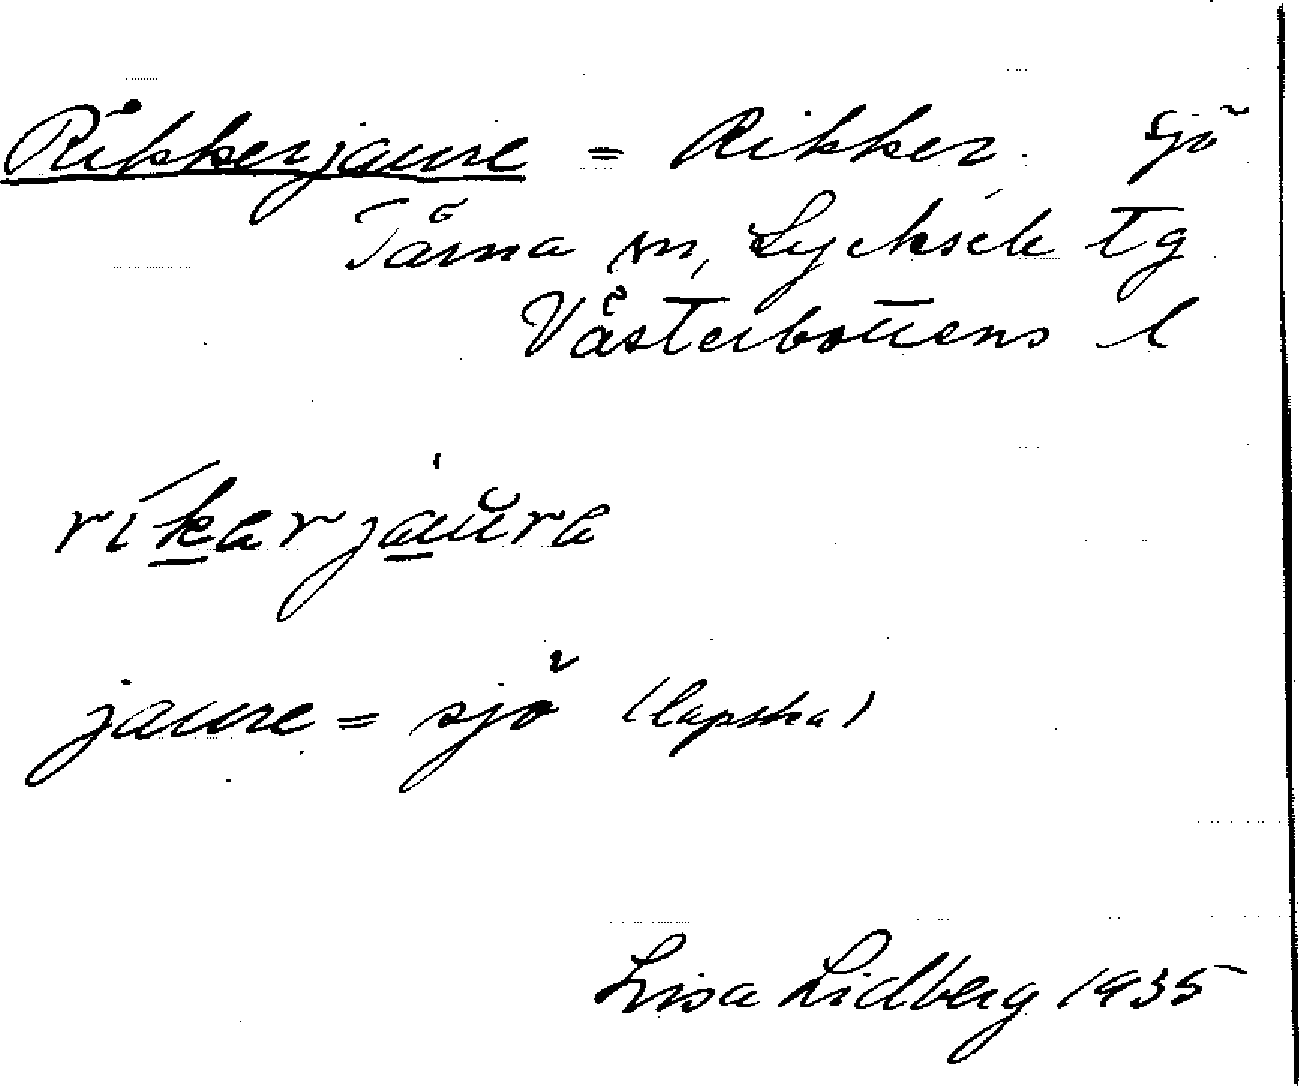 Rikkerjaure = Rikker. sjö
Tärna sn, Lycksele tg
Västerbottens l
ríkarjaŭra
jaure = sjö (lapska)
Lisa Lidberg 1935